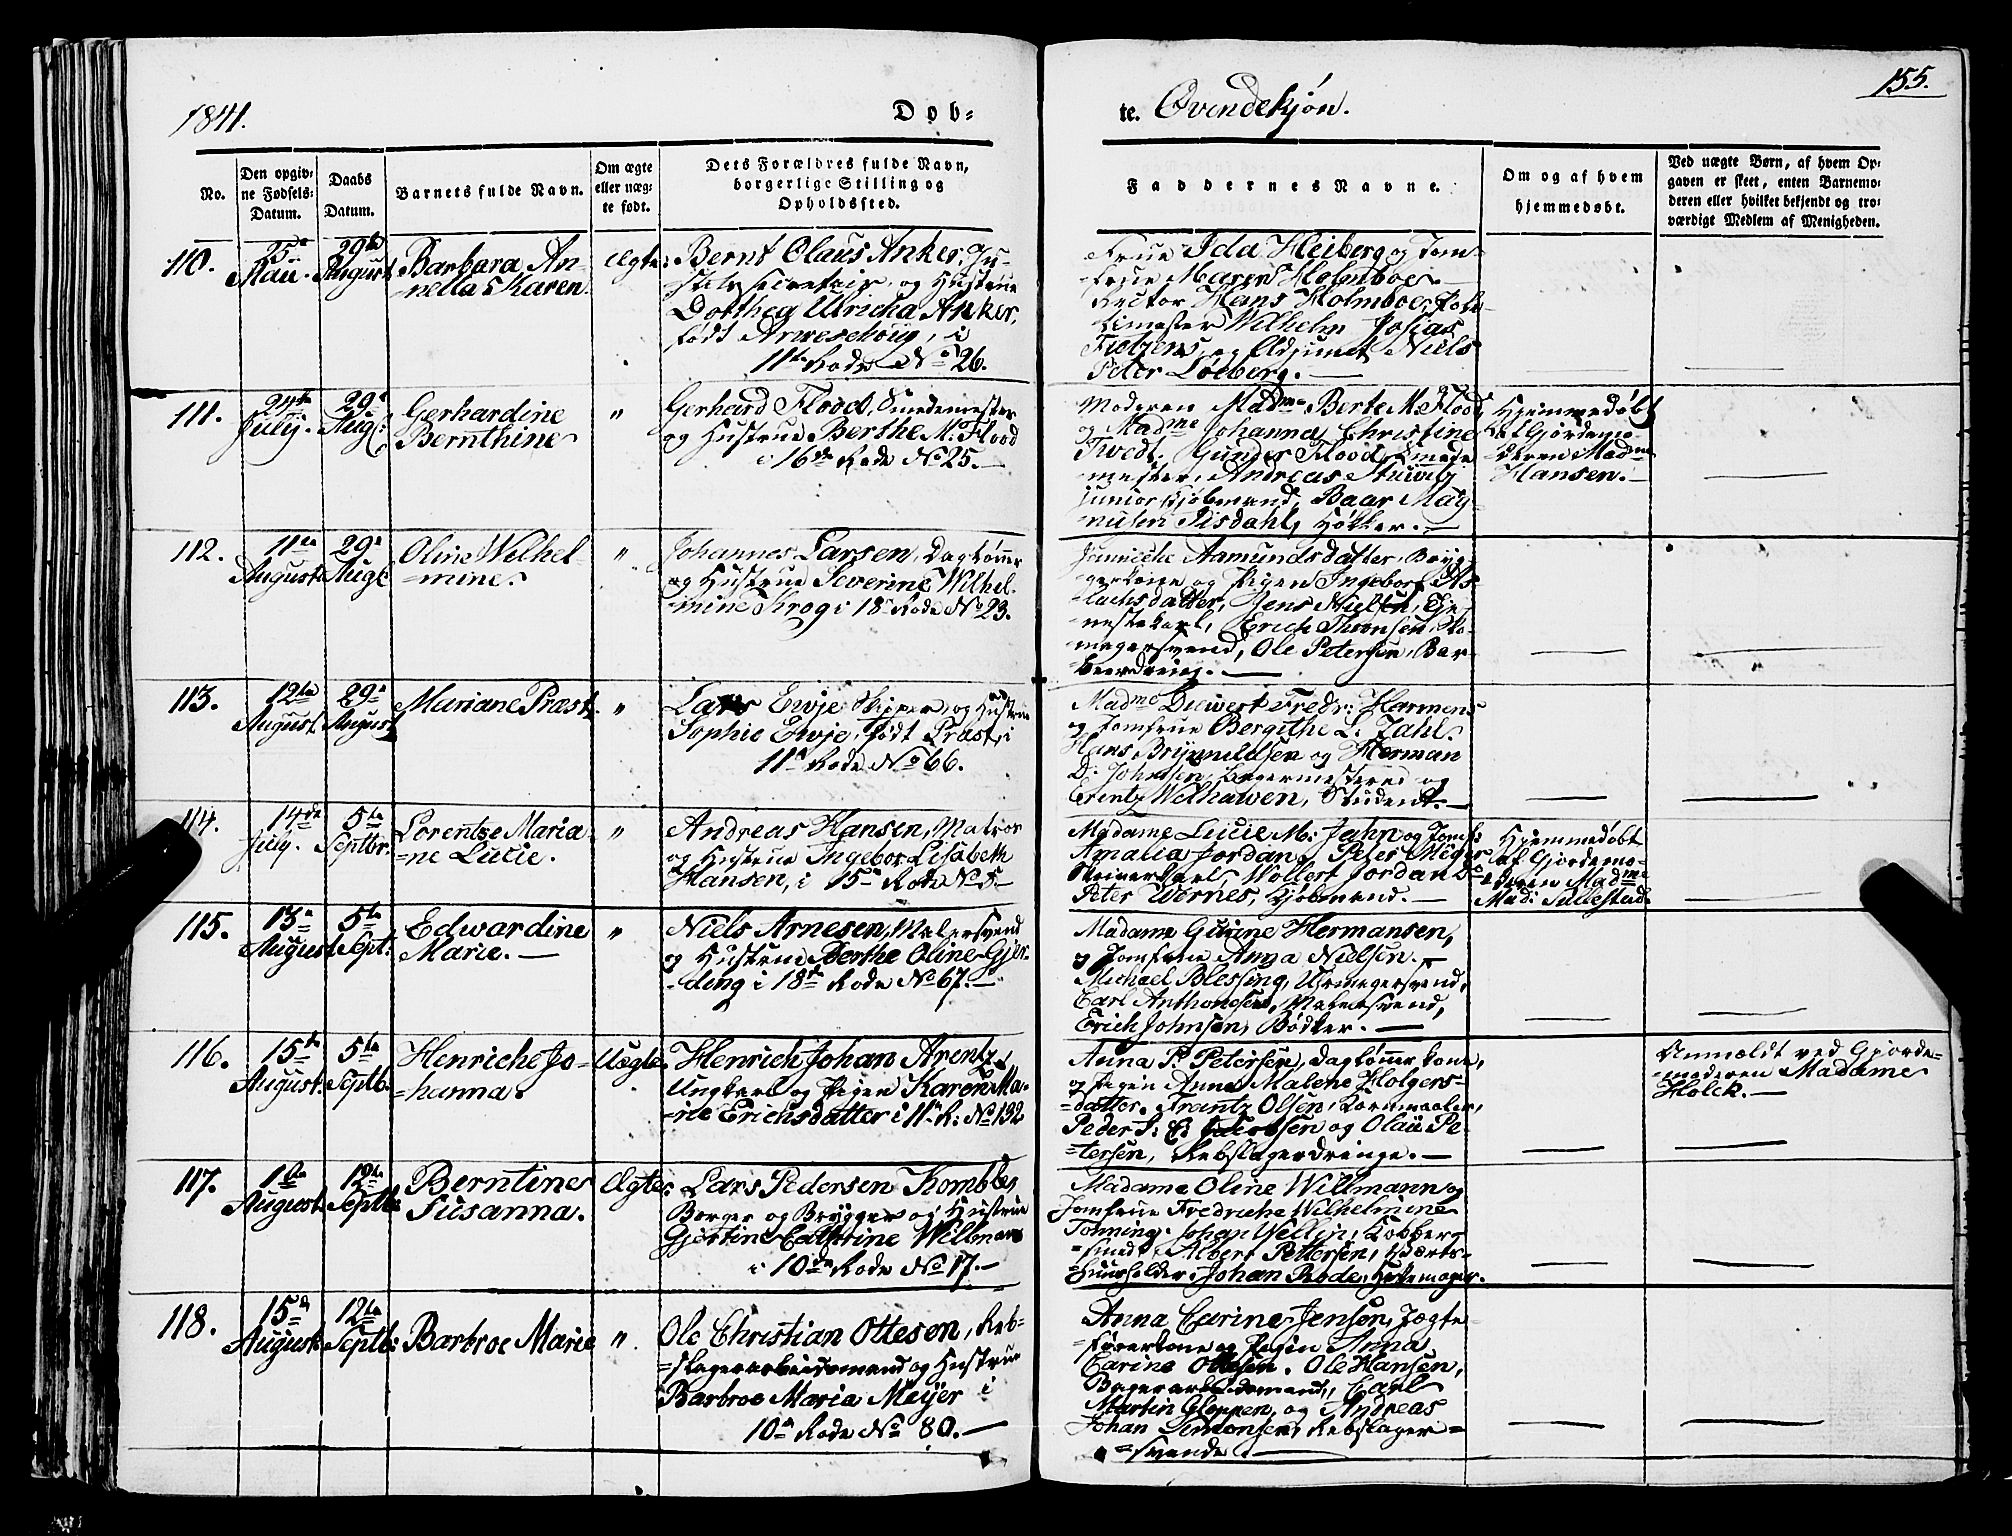 1841.
Døb-
te. Qvindekjøn.
155.
No.
Den opgiv-
ne Fødsels-
Datum.
Daabs
Datum.
Barnets fulde Navn.
Om ægte
eller uæg-
te født.
Dets Forældres fulde Navn,
borgerlige Stilling og
Opholdssted.
Faddernes Navne.
Om og af hvem
hjemmedøbt.
Ved uægte Børn, af hvem Op-
gaven er skeet, enten Barnemo-
deren eller hvilket bekjendt og tro-
værdigt Medlem af Menigheden.
110.
25de
Mai
29de
August
Barbara An-
nella Karen
Ægte
Bernt Olaus Anker,
og Hustrue
Dorthea Ulricha Anker,
født i
11te Rode No 26.
Frue Ida Heiberg og Jom-
frue Maren Holmboe
Rector Hans Holmboe,
Wilhelm Josias
og Adjunct Niels
Peter Löeberg.
111.
24de
July.
29de
Augt:
Gerhardine
Bernthine
"
Gerhard Flood, Smedemester
og Hustrue Berthe M. Flood
i 16de Rode No 25.
Moderen Madme Berte M. Flood
og Madme Johanna Christine
Tvedt. Gunder Flood, Smede-
mester, Andreas
junior Kjöbmand, Baar Mag-
nusen Höker.
Hjemmedöbt
af Gjordemo-
deren Madme
Hansen.
112.
11te
August
29de
Augt:
Oline Wilhel-
mine.
"
Johannes Larsen, Dagtömrer
og Hustrue Severine Wilhel-
mine Krog i 18de Rode No 23.
Aamundsdatter,
og Pigen Ingeborg As-
lachsdatter, Jens Nielsen, Tje-
nestekarl, Erich Sko-
magersvend, Ole Petersen, Bar-
beerdreng.
113.
12te
August
29de
August
Mariane Prast
"
Lars Ewje Skipper og Hustrue
Sophie Ewje, født Prast, i
11te Rode No 66.
Madme Fredr: Harmens
og Jomfrue Bergithe L. Zahl.
Hans Brynnildsen og Herman
D. Johnsen, og
Welhawen, Student.
114.
14de
July.
5te
Septbr.
Lorentze Maria-
ne Lucie.
"
Andreas Hansen, Matros
og Hustrue Ingebor Lisabeth
Hansen, i 15de Rode No 5
Madame Lucie M: Jahn og Jomf:
Amalia Jordan, Peter Meyer
Wollert Jordan
Peter Wernes, Kjöbmand.
Hjemmedöbt
af Gjordemo-
deren Madme
Mad: Tullestad.
115.
13de
August
5te
Sept:
Edwardine
Marie.
"
Niels Arnesen, Malersvend
og Hustrue Berthe Oline Gjer-
ding i 18de Rode No 67.
Madame Gurine Hermansen,
og Jomfrue Anna Nielsen.
Michael Blessing, Uhrmagersvend,
Carl Anthonesen, Malersvend,
Erich Johnsen, Bödker.
116.
15de
August.
5te
Septb.
Henriche Jo-
hanna.
Uægte.
Henrich Johan Arentz
Ungkarl og Pigen Karen Ma-
rie Erichsdatter i 11te R: No 132
Anna P. Petersen, Dagtömrerkone,
og Pigen Anne Malene Holgers-
datter. Frantz Olsen, Kornmaaler,
Peder S: Jacobsen og Olaü Pe-
tersen, Rebslagerdrenge.
Anmældt ved Gjorde-
moderen Madame
Holck.
117.
1te
August
12te
Septb:
Berntine
Susanna.
Ægte:
Lars Pedersen Komble,
Borger og Brygger og Hustrue
Gjertine Cathrine Willmann
i 10de Rode No 17.
Madame Oline Willmann og
Jomfrue Fredriche Wilhelmine
Tonning. Johan Wellin, Kobber-
smed, Albert Pettersen, Værts-
huusholder, Johan Rode,
118.
15de
August
12te
Septb:
Barbroe Marie
"
Ole Christian Ottesen, Reb-
slagerarbeidsmand og Hustrue
Barbroe Maria Meyer i
10de Rode No 80.
Anna Carine Jensen, Jægte-
förerkone og Pigen Anna
Carine Ottesen. Ole Hansen,
Bagerarbeidsmand, Carl
Martin Gloppen, og Andreas
Johan Simonsen, Rebslager-
svende.